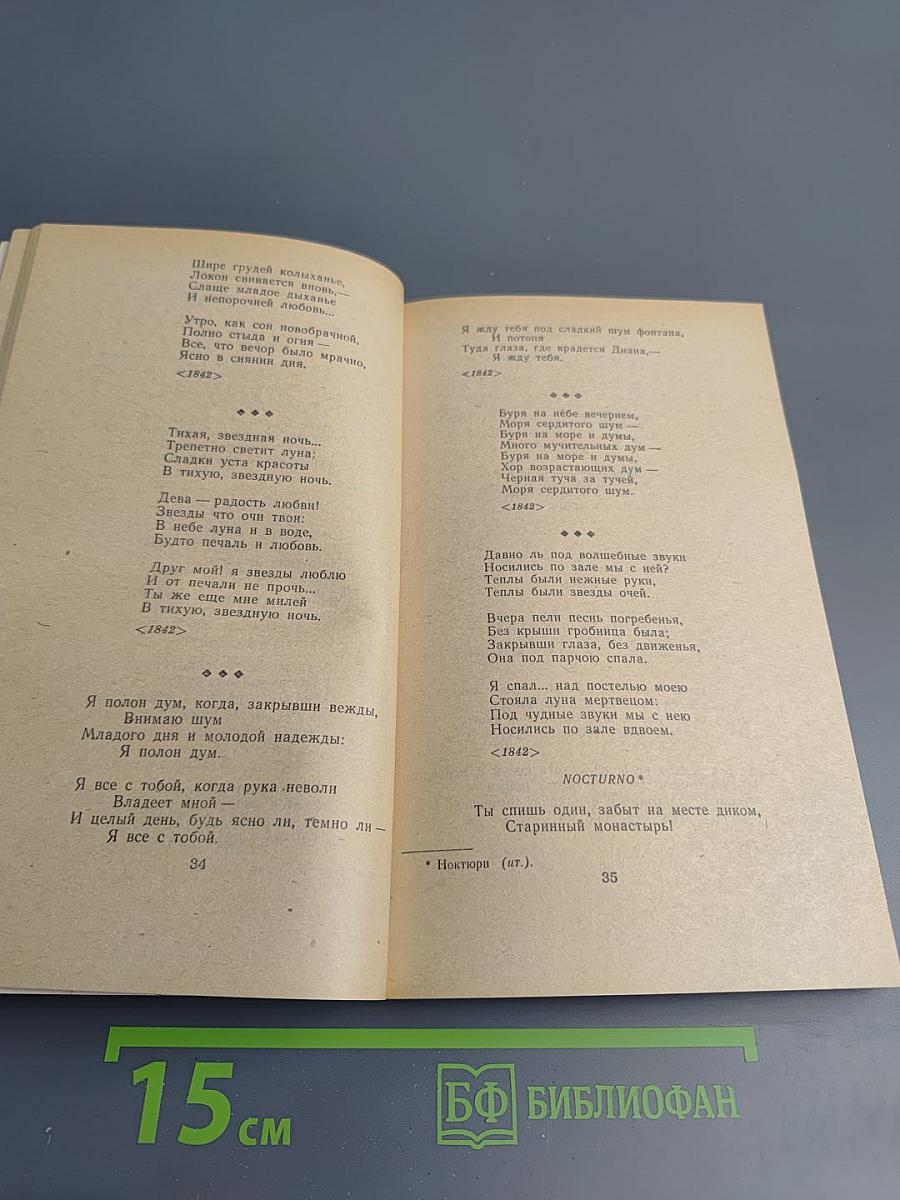 Шире грудей колыханье,
Локон свивается вновь,—
Слаще младое дыханье
И непорочней любовь...
Утро, как сон новобрачной,
Полно стыда и огня —
Все, что вечор было мрачно,
Ясно в сиянии дня.
<1842>
Тихая, звездная ночь...
Трепетно светит луна;
Сладки уста красоты
В тихую, звездную ночь.
Дева — радость любви!
Звезды что очи твои:
В небе луна и в воде,
Будто печаль и любовь.
Друг мой! я звезды люблю
И от печали не прочь...
Ты же еще мне милей
В тихую, звездную ночь.
<1842>
Я полон дум, когда, закрывши вежды,
Внимаю шум
Младого дня и молодой надежды;
Я полон дум.
Я все с тобой, когда рука неволи
Владеет мной —
И целый день, будь ясно ли, темно ли —
Я все с тобой.
34
Я жду тебя под сладкий шум фонтана,
И потопя
Туда глаза, где крадется Диана,—
Я жду тебя.
<1842>
Буря на небе вечернем,
Моря сердитого шум —
Буря на море и думы,
Много мучительных дум —
Буря на море и думы,
Хор возрастающих дум —
Черная туча за тучей,
Моря сердитого шум.
<1842>
Давно ль под волшебные звуки
Носились по зале мы с ней?
Теплы были нежные руки,
Теплы были звезды очей.
Вчера пели песнь погребенья,
Без крыши гробница была;
Закрывши глаза, без движенья,
Она под парчою спала.
Я спал... над постелью моею
Стояла луна мертвецом:
Под чудные звуки мы с нею
Носились по зале вдвоем.
<1842>
NOCTURNO *
Ты спишь один, забыт на месте диком,
Старинный монастырь!
* Ноктюрн (ит.).
35
15 см
БФ БИБЛИОФАН